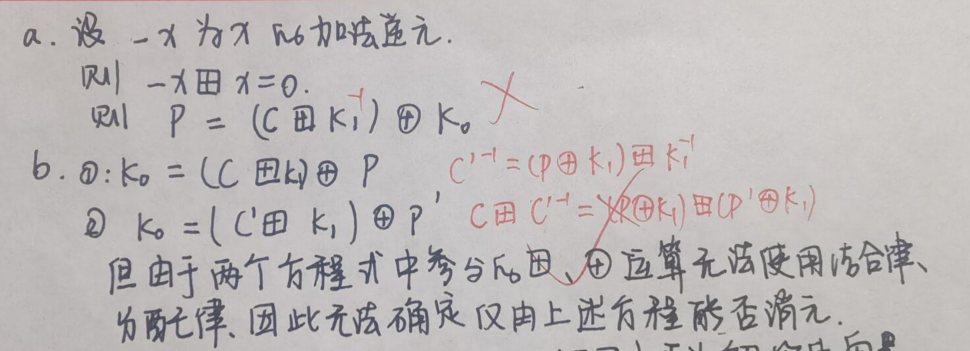 a. 设 -x 为 x 的加法逆元.
则 -x ⊞ x = 0.
则 P = (C ⊞ K₁⁻¹) ⊕ K₀
b. ①: K₀ = (C ⊞ K₁) ⊕ P C'⁻¹ = (P ⊕ K₁) ⊞ K₁⁻¹
② K₀ = (C' ⊞ K₁) ⊕ P' C ⊞ C'⁻¹ = (P ⊕ K₁) ⊞ (P' ⊕ K₁)
但由于两个方程式中参与的 ⊞、⊕ 运算无法使用结合律、
分配律、因此无法确定仅由上述方程能否消元.